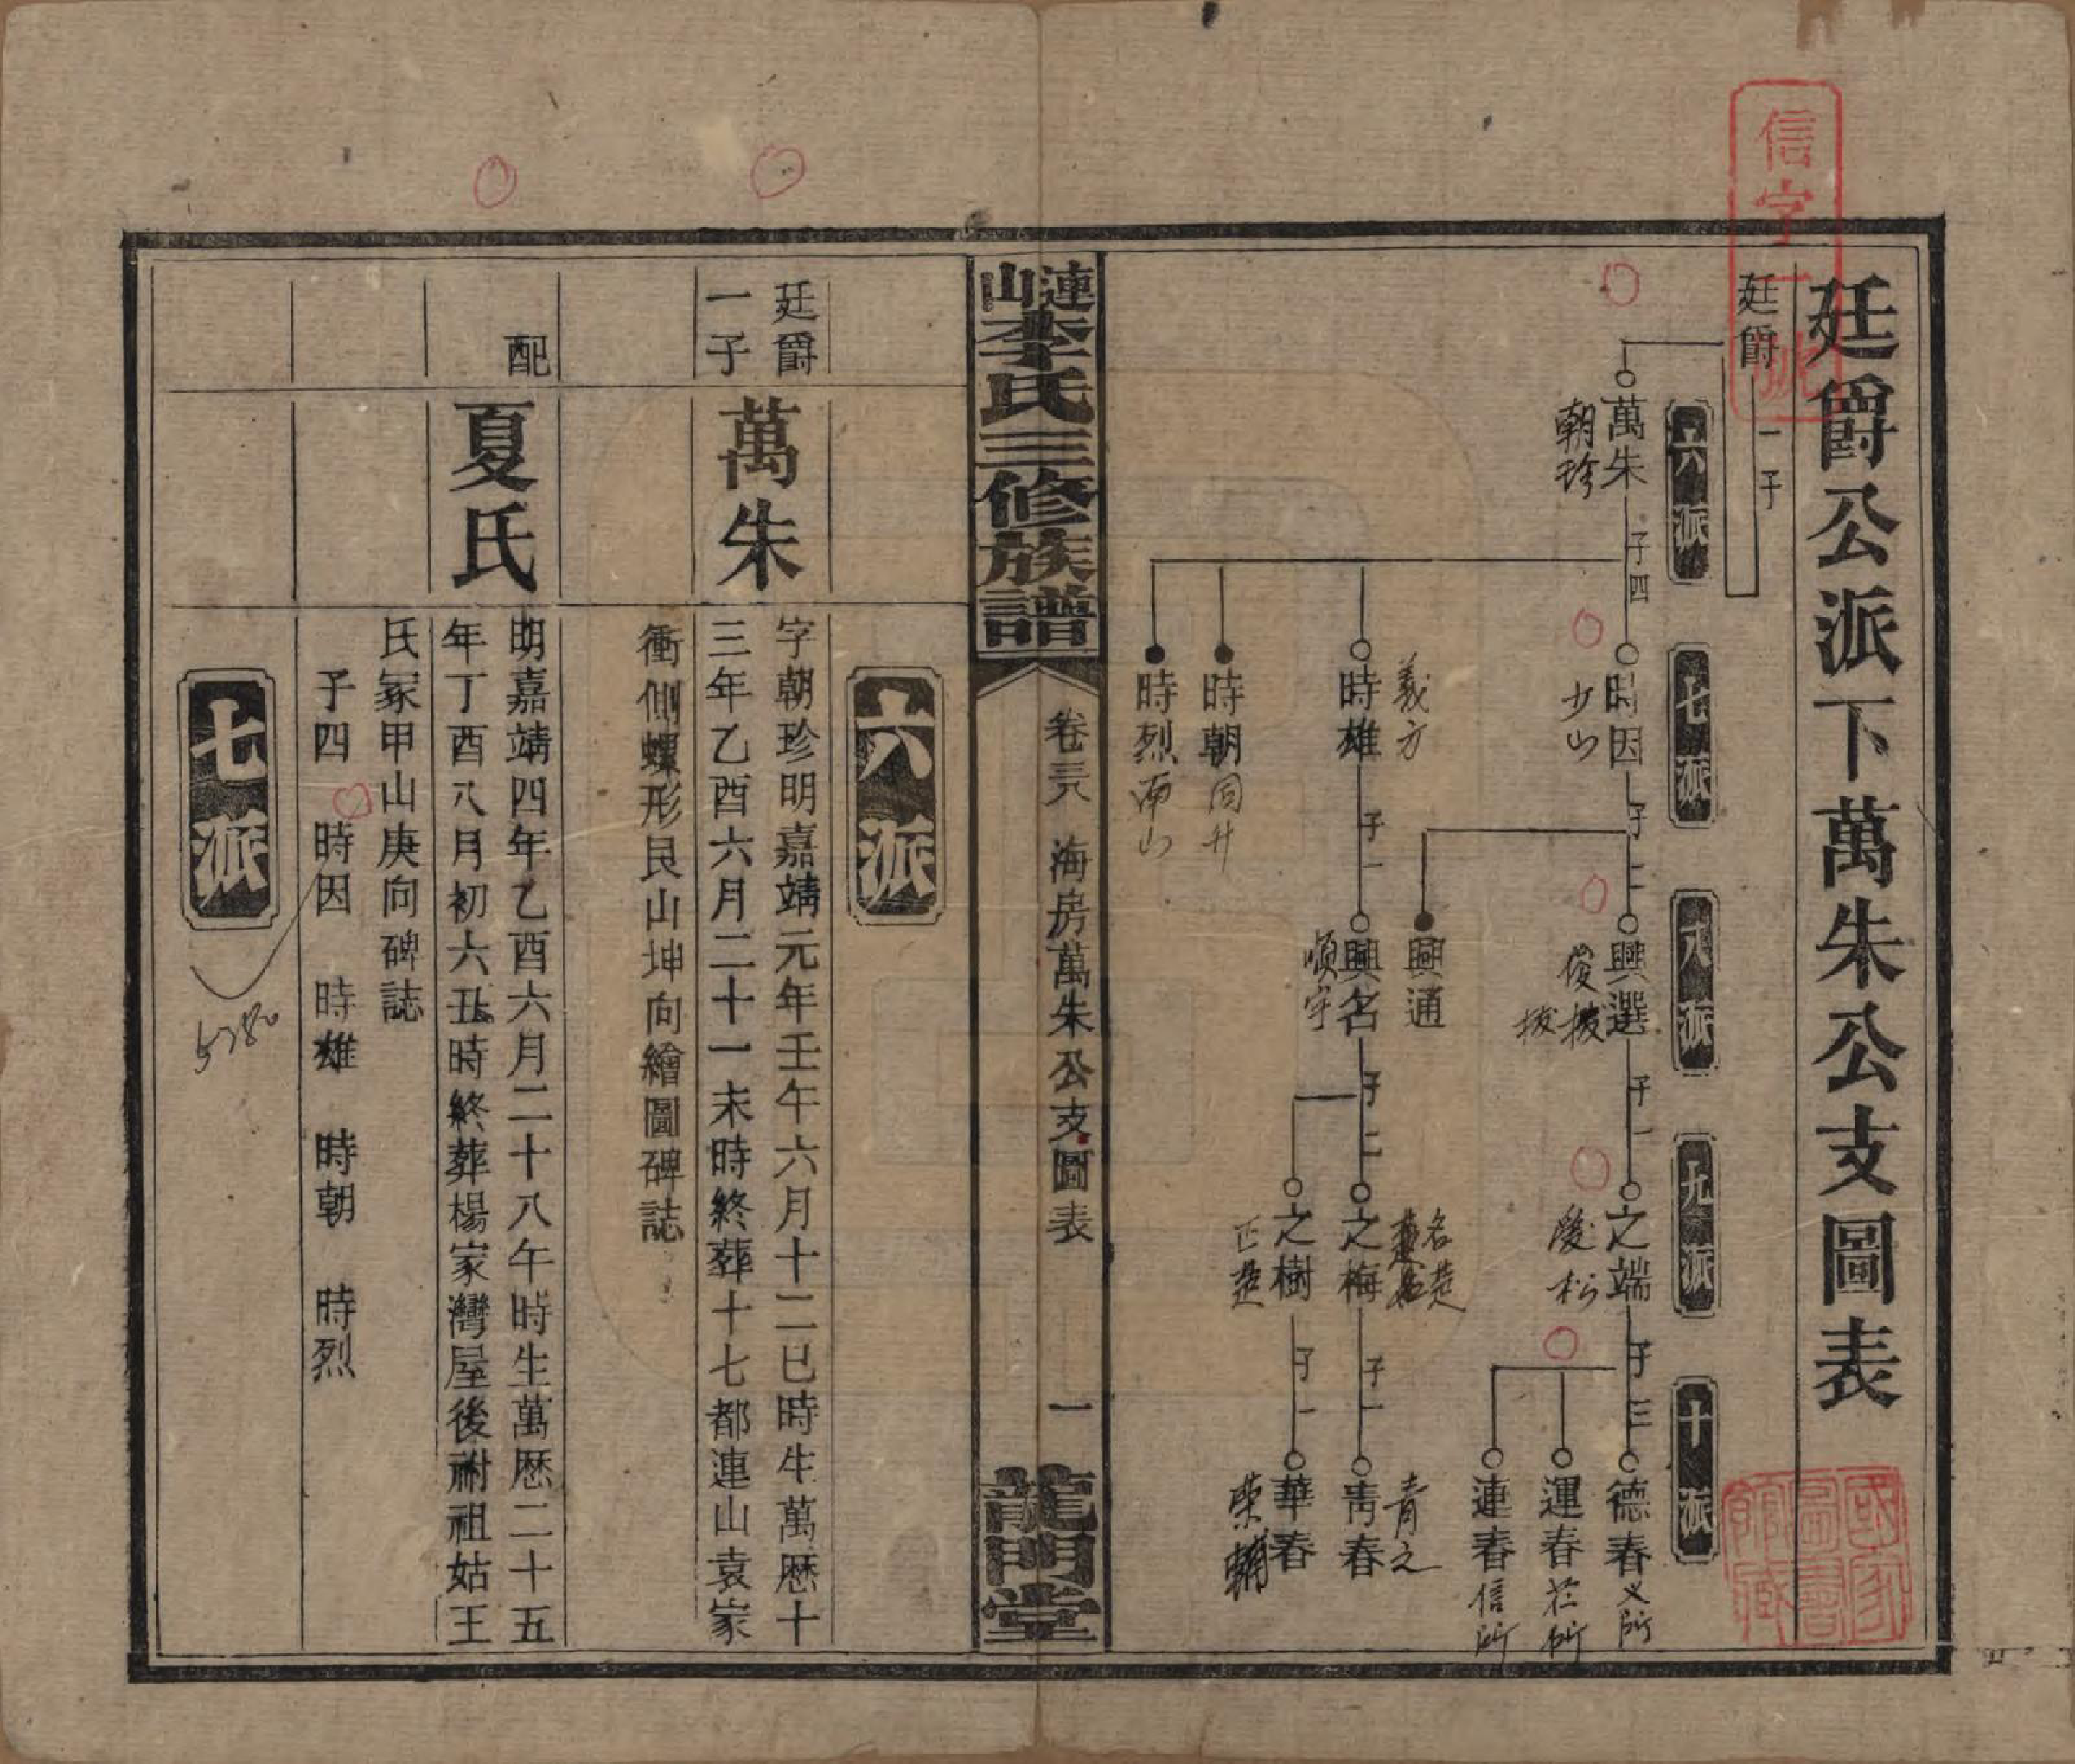 信字一號
廷爵公派下萬朱公支圖表
廷爵
一子
六派
七派
八派
九派
十派
萬朱
朝珍
子四
時因
少山
子二
興選
俊拔
拔
子一
之端
後松
子三
德春
義所
運春
芒所
連春
信所
興通
時雄
義方
子一
興名
順宇
子二
之梅
名楚
子一
青春
青之
之樹
正楚
子一
華春
榮輔
時朝
同升
時烈
南山
國家圖書館藏
連山李氏三修族譜
卷三八 海房萬朱公支圖表
一
龍門堂
六派
廷爵
一子
萬朱
字朝珍明嘉靖元年壬午六月十二巳時生萬歷十
三年乙酉六月二十一未時終葬十七都連山袁家
衝側螺形艮山坤向繪圖碑誌
配
夏氏
明嘉靖四年乙酉六月二十八午時生萬歷二十五
年丁酉八月初六丑時終葬楊家灣屋後祔祖姑王
氏冢甲山庚向碑誌
子四 時因 時雄 時朝 時烈
七派